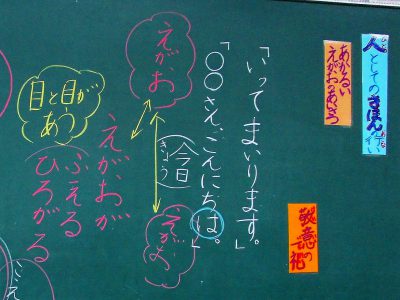 人としてのきほんの行い
あかるい
えがおのあいさつ
敬意の
「いってまいります。」
「〇〇さん、こんにちは。」
きょう
今日
えがお
えがお
目と目が
あう
えがおが
ふえる
ひろがる